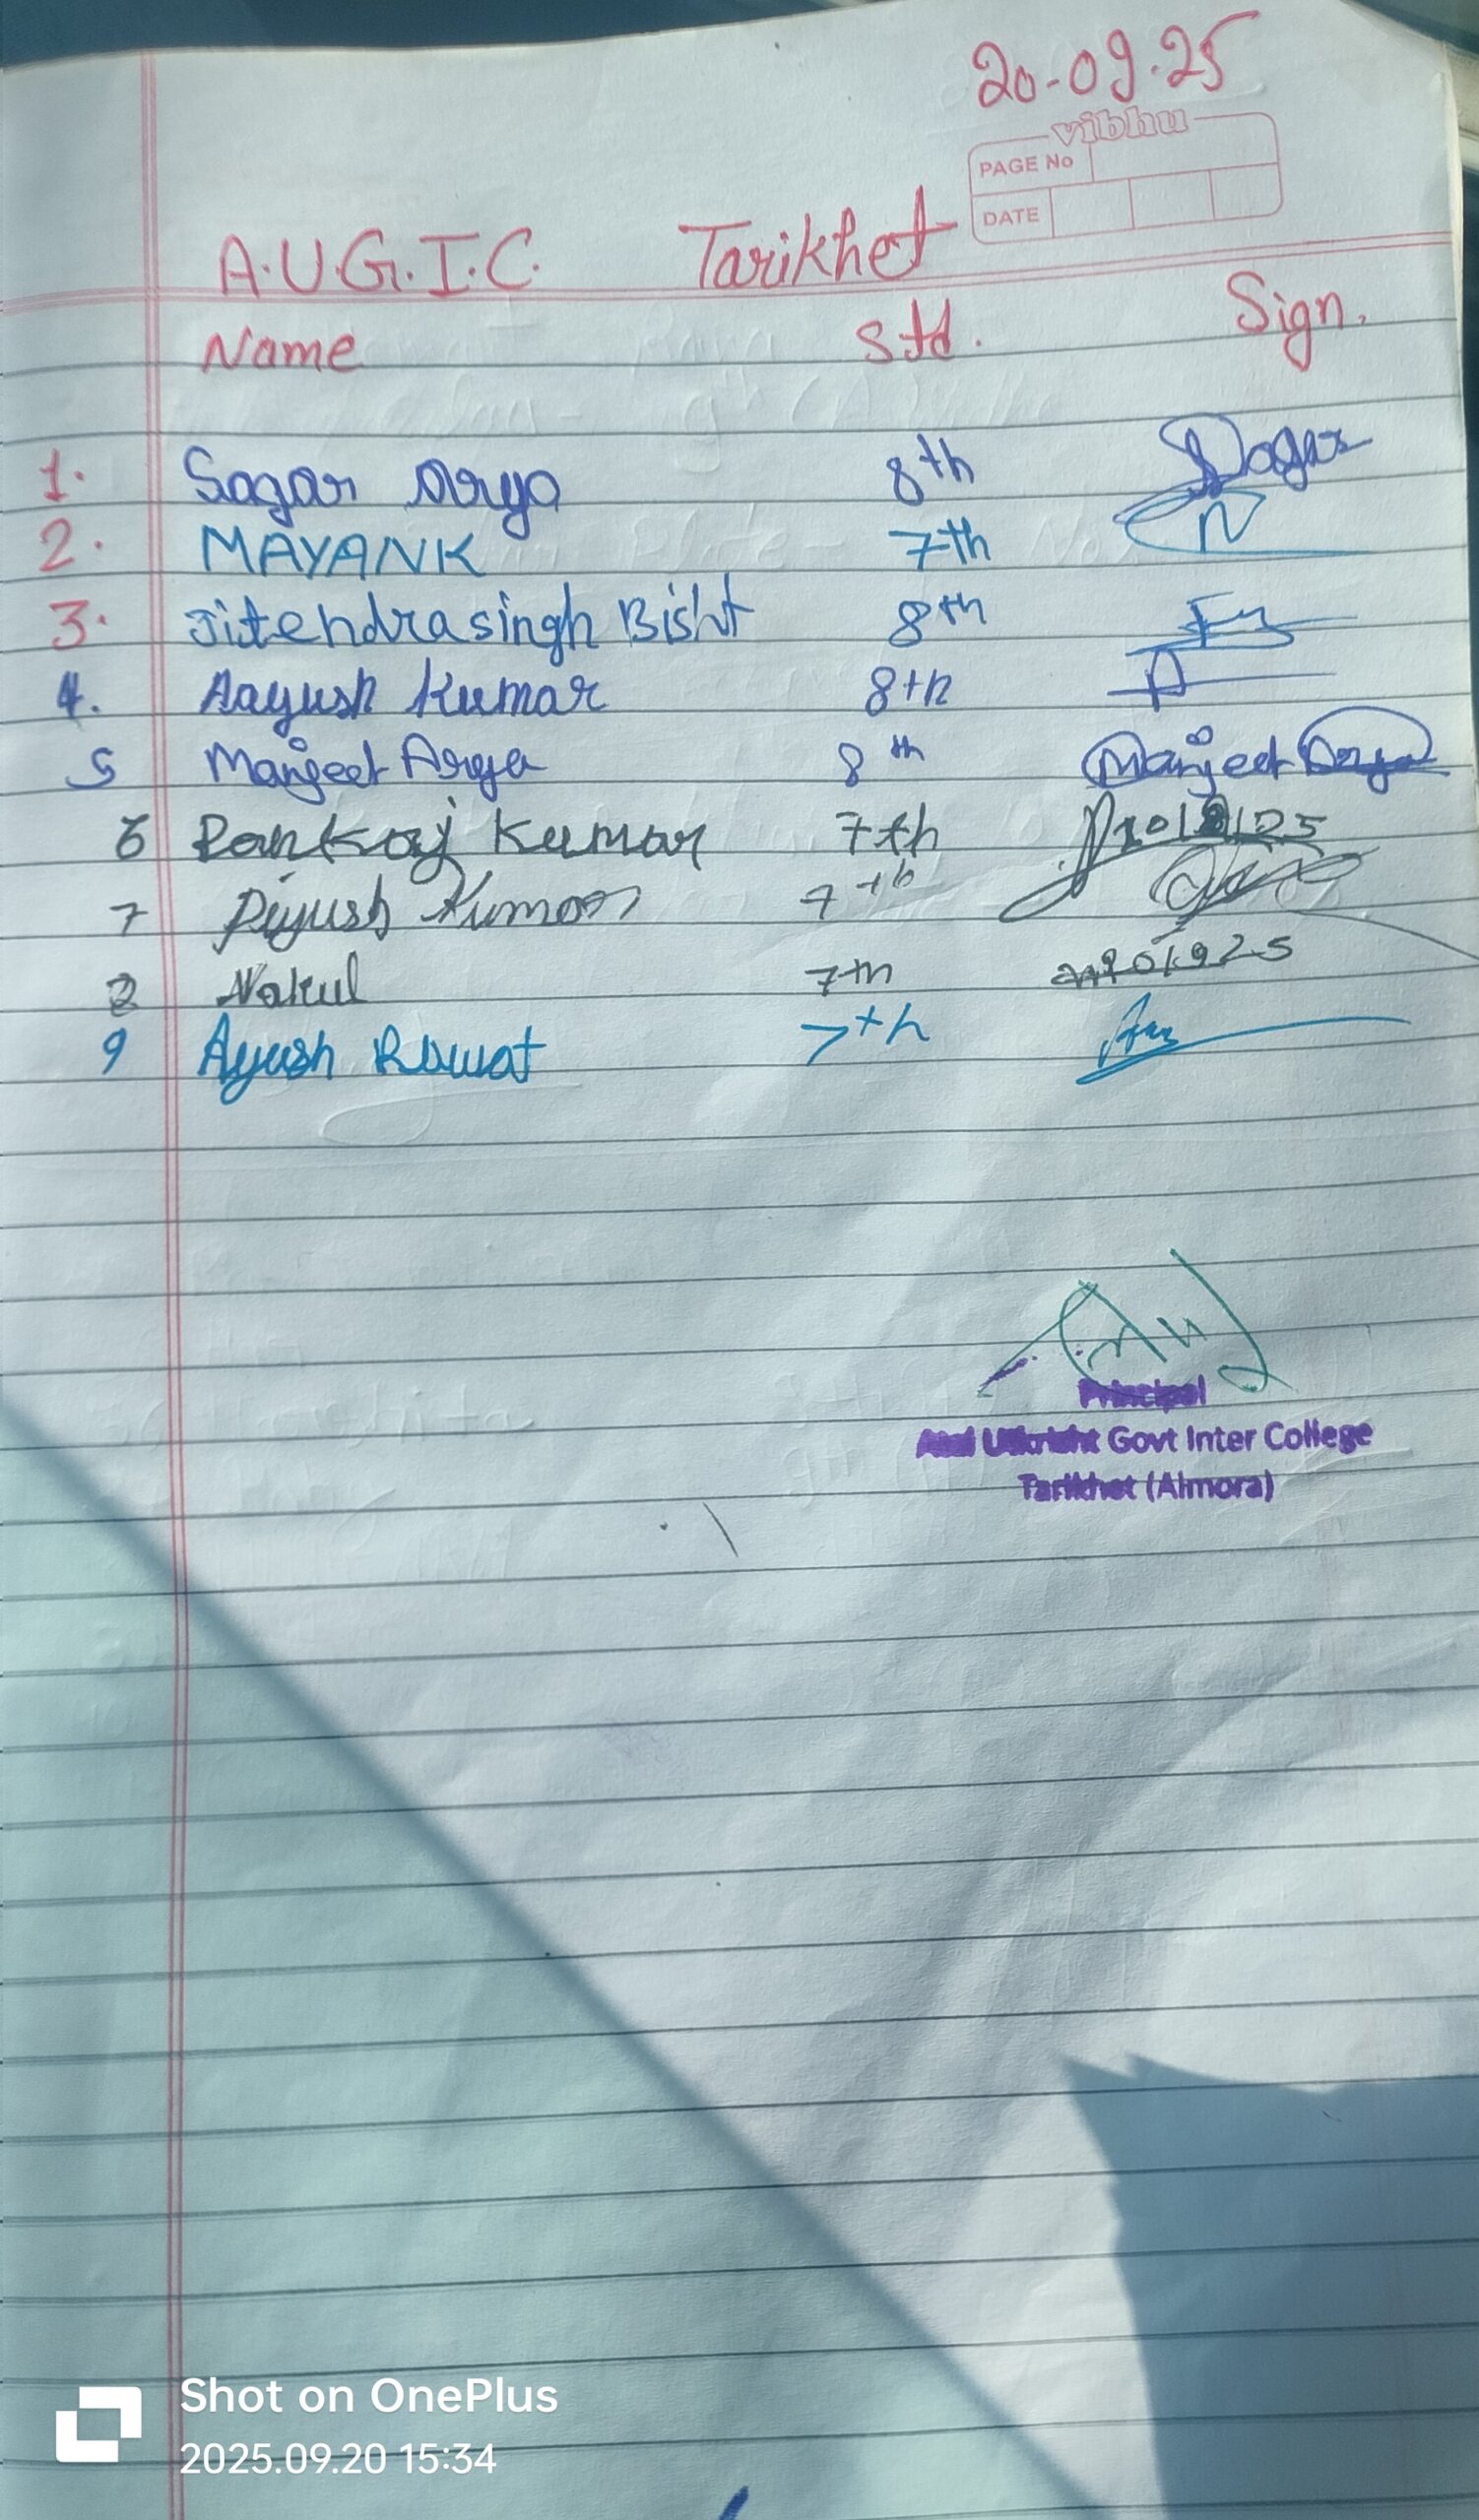 20-09-25
vibhu
PAGE No
DATE
A.U.G.I.C. Tarikhet
Name Std. Sign.
1. Sagar Arya 8th Sagar
2. MAYANK 7th
3. Jitendrasingh Bisht 8th
4. Aayush Kumar 8th
5 Manjeet Arya 8th Manjeet Arya
6 Pankaj Kumar 7th
7 Piyush Kumar 7th
8 Nakul 7th
9 Ayush Rawat 7th
Principal
Atal Utkrisht Govt Inter College
Tarikhet (Almora)
Shot on OnePlus
2025.09.20 15:34